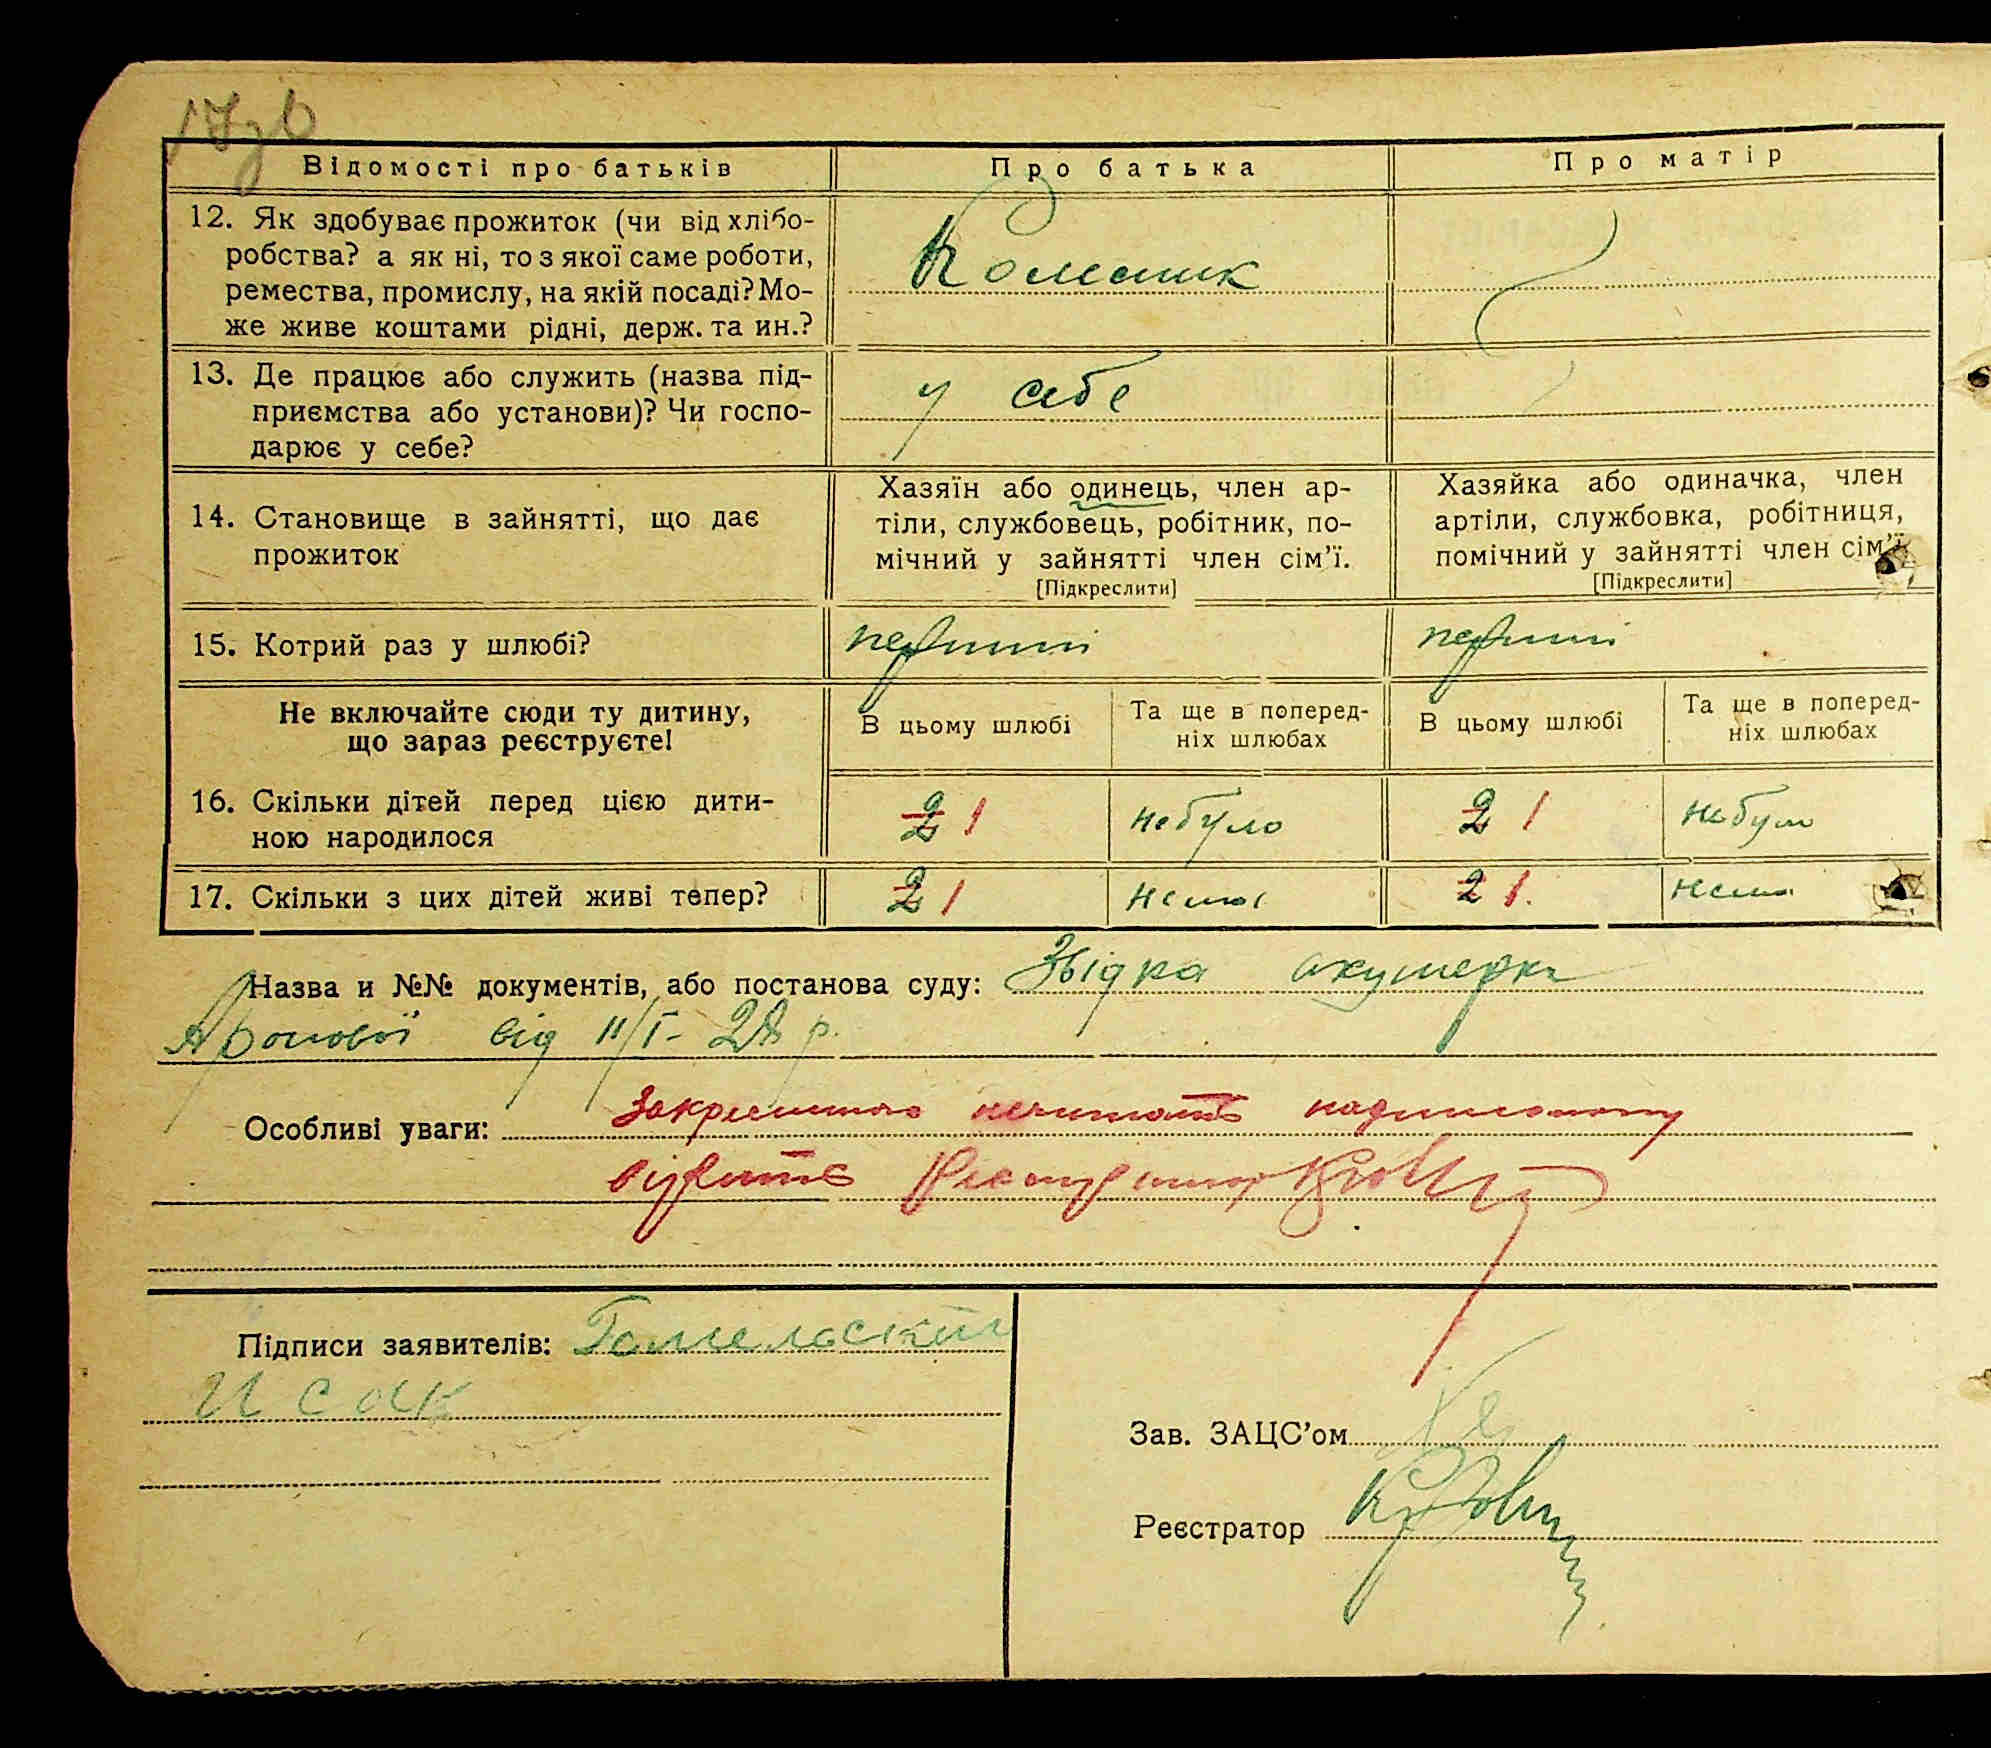 17зв
Відомості про батьків
Про батька
Про матір
12. Як здобуває прожиток (чи від хлібо-
робства? а як ні, то з якої саме роботи,
ремества, промислу, на якій посаді? Мо-
же живе коштами рідні, держ. та ин.?
13. Де працює або служить (назва під-
приємства або установи)? Чи госпо-
дарює у себе?
у себе
14. Становище в зайнятті, що дає
прожиток
Хазяїн або одинець, член ар-
тіли, службовець, робітник, по-
мічний у зайнятті член сім’ї.
[Підкреслити]
Хазяйка або одиначка, член
артіли, службовка, робітниця,
помічний у зайнятті член сім’ї
[Підкреслити]
15. Котрий раз у шлюбі?
перший
перший
Не включайте сюди ту дитину,
що зараз реєструєте!
В цьому шлюбі
Та ще в поперед-
ніх шлюбах
В цьому шлюбі
Та ще в поперед-
ніх шлюбах
16. Скільки дітей перед цією дити-
ною народилося
2 1
небуло
2 1
небуло
17. Скільки з цих дітей живі тепер?
2 1
нема
2 1.
нема
Назва и №№ документів, або постанова суду: Звідка акушерки
Аронової від 11/I- 28 р.
Особливі уваги: Закреслено нечитать надписаному
вірить Реєстратор
Підписи заявителів: Гомельский
Исак
Зав. ЗАЦС’ом
Реєстратор